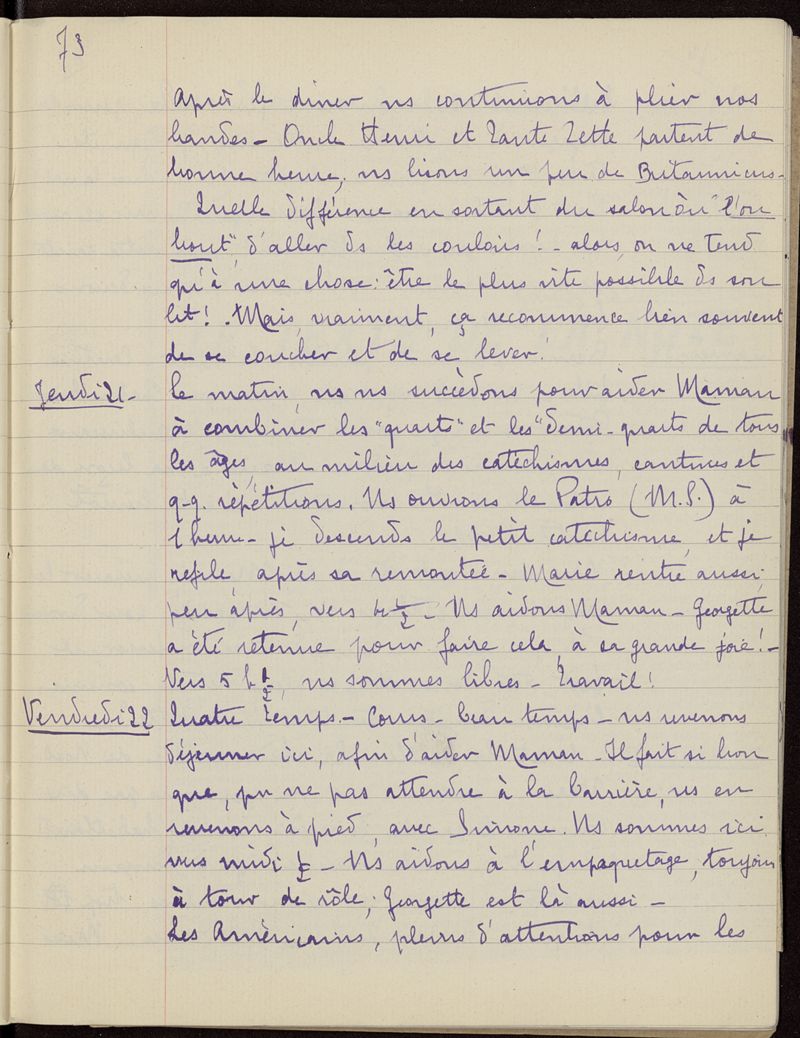 73
Après le diner ns continuons à plier nos
bandes - Oncle Henri et Tante Zette partent de
bonne heure, ns lisons un peu de Britannicus -
Quelle différence en sortant du salon où "l'on
bout", d'aller ds les couloirs ! - alors, on ne tend
qu'à une chose : être le plus vite possible ds son
lit ! . Mais, vraiment, ça recommence bien souvent
de se coucher et de se lever !
Jeudi 21 -
le matin, ns ns succèdons pour aider Maman
à combiner les "quarts" et les "demi-quarts de tous
les âges, au milieu des catéchismes, cantines et
q-q. répétitions. Ns ouvrons le Patro (M.S.) à
1 heure - je descends le petit catechisme, et je
refile, après sa remontée - Marie rentre aussi,
peu après, vers 4h 1/2 - Ns aidons Maman - Georgette
a été retenue pour faire cela, à sa grande joie ! -
Vers 5 h 1/2, ns sommes libres - Travail !
Vendredi 22
Quatre Temps - Cours - beau temps - ns revenons
déjeuner ici, afin d'aider Maman - Il fait si bon
que, pr ne pas attendre à la barrière, ns en
revenons à pied, avec Simone. Ns sommes ici
vers midi 1/2 - Ns aidons à l'empaquetage, toujours
à tour de rôle ; Georgette est là aussi -
Les Américains, pleins d'attentions pour les